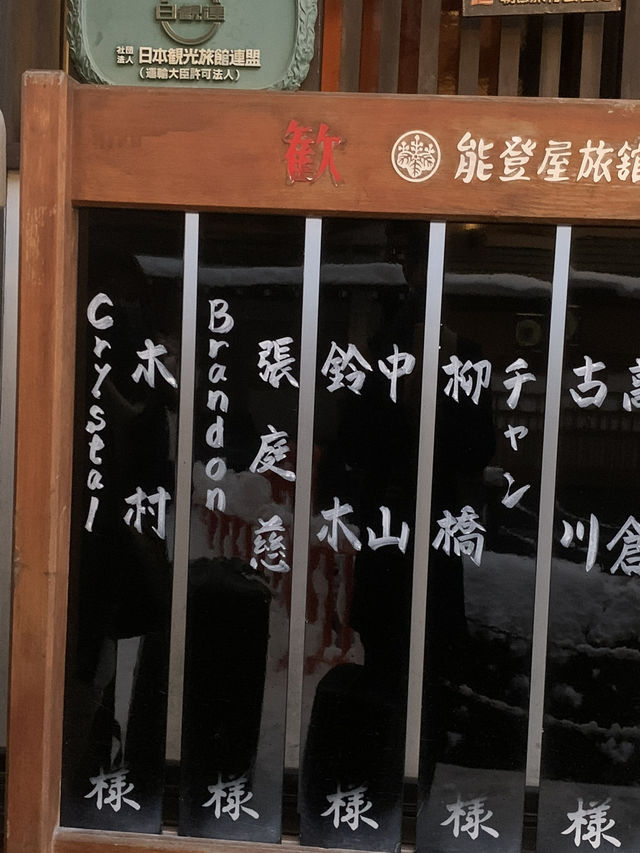 日観連
社団法人 日本観光旅館連盟
(運輸大臣許可法人)
歓 能登屋旅館
高倉
古川
様
チャン
柳橋
様
中山
鈴木
様
張庭慈
Brandon
様
木村
Crystal
様